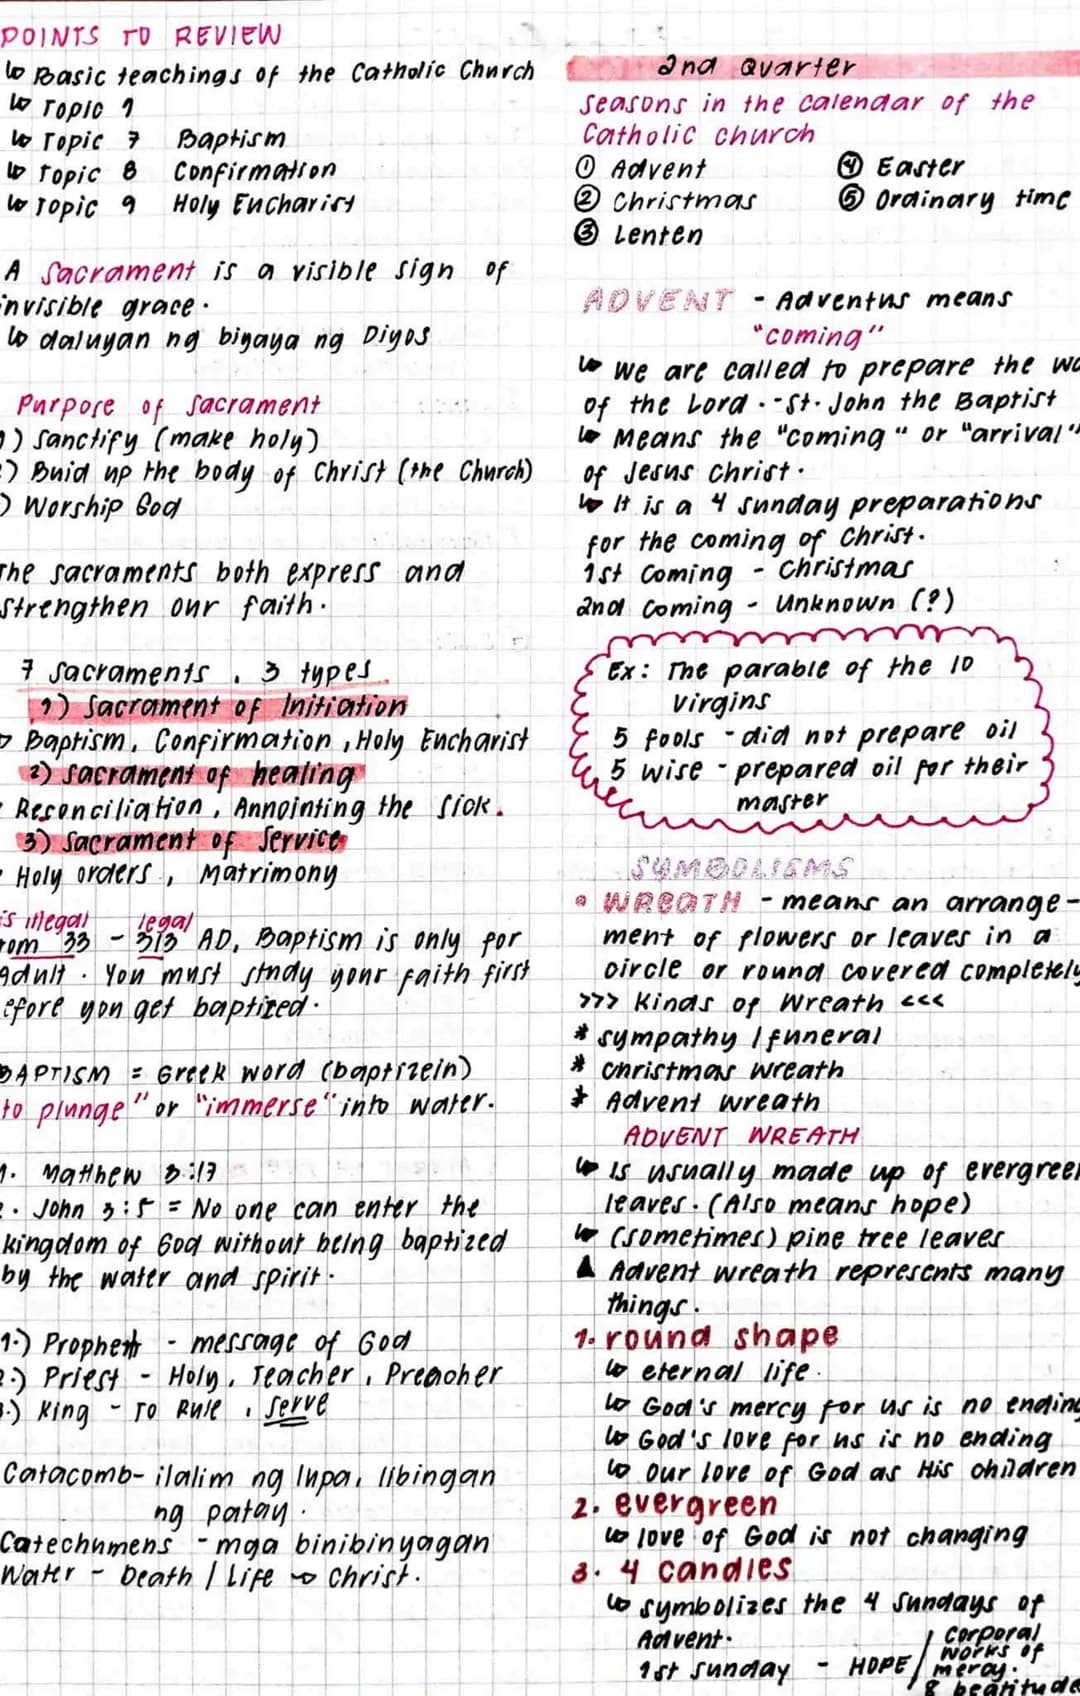 POINTS TO REVIEW
↳ Basic teachings of the Catholic Church
↳ Topic 1
↳ Topic 7 Baptism
↳ Topic 8 Confirmation
↳ Topic 9 Holy Eucharist
A Sacrament is a visible sign of
invisible grace.
↳ daluyan ng biyaya ng Diyos
Purpose of Sacrament
) Sanctify (make holy)
) Buid up the body of Christ (the Church)
) Worship God
The sacraments both express and
strengthen our faith.
7 Sacraments, 3 types
1) Sacrament of Initiation
Baptism, Confirmation, Holy Eucharist
2) Sacrament of healing
Reconciliation, Annointing the Sick.
3) Sacrament of Service
Holy orders, Matrimony
is illegal legal
rom 33 - 313 AD, Baptism is only for
Adult. You must study your faith first
efore you get baptized.
BAPTISM = Greek word (baptizein)
to plunge" or "immerse" into water.
1. Matthew 3:17
2. John 3:5 = No one can enter the
kingdom of God without being baptized
by the water and spirit.
1.) Prophet - message of God
2.) Priest - Holy, Teacher, Preacher
3.) King - To Rule, Serve
Catacomb- ilalim ng lupa, libingan
ng patay.
Catechumens - mga binibinyagan
Water - Death / Life → Christ.
2nd Quarter
Seasons in the calendar of the
Catholic church
① Advent ④ Easter
② Christmas ⑤ Ordinary time
③ Lenten
ADVENT - Adventus means
"coming"
↳ We are called to prepare the wa
of the Lord. - St. John the Baptist
↳ Means the "coming" or "arrival"
of Jesus Christ.
↳ It is a 4 Sunday preparations
for the coming of Christ.
1st Coming - Christmas
2nd Coming - Unknown (?)
Ex: The parable of the 10
virgins
5 fools - did not prepare oil
5 wise - prepared oil for their
master
SYMBOLISMS
WREATH - means an arrange-
ment of flowers or leaves in a
circle or round covered completely
>>> Kinds of Wreath <<<
* sympathy / funeral
* christmas wreath
* Advent wreath
ADVENT WREATH
↳ Is usually made up of evergreen
leaves. (Also means hope)
↳ (sometimes) pine tree leaves
▲ Advent wreath represents many
things.
1. round shape
↳ eternal life.
↳ God's mercy for us is no ending
↳ God's love for us is no ending
↳ Our love of God as His children
2. evergreen
↳ love of God is not changing
3. 4 candles
↳ symbolizes the 4 Sundays of
Advent.
1st Sunday - HOPE / corporal
works of
mercy.
8 beatitude